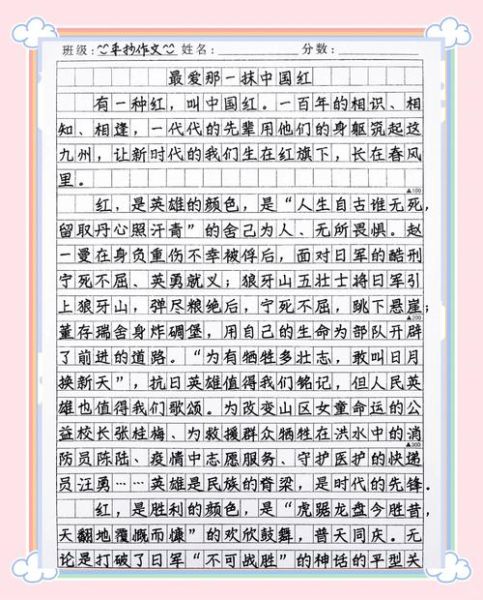 班级：手抄作文 姓名： 分数：
最爱那一抹中国红
有一种红，叫中国红。一百年的相识、相
知、相逢，一代代的先辈用他们的身躯筑起这
九州，让新时代的我们生在红旗下，长在春风
里。
▲100
红，是英雄的颜色，是“人生自古谁无死，
留取丹心照汗青”的舍己为人、无所畏惧。赵
一曼在身负重伤不幸被俘后，面对日军的酷刑
宁死不屈、英勇就义；狼牙山五壮士将日军引
上狼牙山，弹尽粮绝后，宁死不屈，跳下悬崖；
▲200
董存瑞舍身炸碉堡，用自己的生命为部队开辟
了前进的道路。“为有牺牲多壮志，敢叫日月
换新天”，抗日英雄值得我们铭记，但人民英
雄也值得我们歌颂。为改变山区女童命运的公
益校长张桂梅、为救援群众牺牲在洪水中的消
▲300
防员陈陆、疫情中志愿服务、守护医护的快递
员汪勇……英雄是民族的脊梁，是时代的先锋。
红，是胜利的颜色，是“虎踞龙盘今胜昔，
天翻地覆慨而慷”的欢欣鼓舞，普天同庆。无
论是打破了日军“不可战胜”的神话的平型关